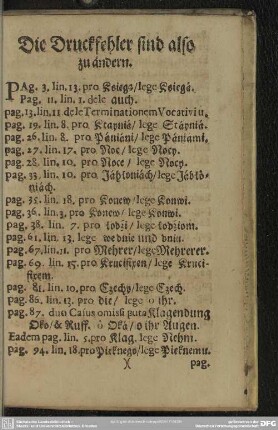 Die Druckfehler sind also
zu ändern.
PAg. 3. lin. 13. pro Księgo/lege Księgá.
Pag. 11. lin. 1. dele auch.
pag. 13. lin. 11 dele Terminationem Vocativi u.
pag. 19. lin. 8. pro Stayniá/ lege Stáyniá.
pag. 26. lin. 8. pro Pániáni/lege Pániami.
pag. 27. lin. 17. pro Noc/ lege Nocy.
pag. 28. lin. 10. pro Noce/ lege Nocy.
pag. 33. lin. 10. pro Jábłoniách/lege Jábło-
niách.
pag. 35. lin. 18. pro Konew/lege Konwi.
pag. 36. lin. 3. pro Konew/ lege Konwi.
pag. 38. lin. 7. pro łodzi/ lege łodziom.
pag. 61. lin. 13. lege we dnie und dniu.
pag. 67. lin. 11. pro Mehrer/lege Mehrerer.
pag. 69. lin. 15. pro Krucifixen/lege Kruci-
fixem.
pag. 81. lin. 10. pro Czechy/lege Czech.
pag. 86. lin. 12. pro die/ lege o ihr.
pag. 87. duo Casus omissi puta Klagendung
Oko/ & Ruff. ô Oká/ o ihr Augen.
Eadem pag. lin. 5. pro Klag. lege Nehni.
pag. 94. lin. 18. pro Pieknego/lege Pieknemu.
X pag.